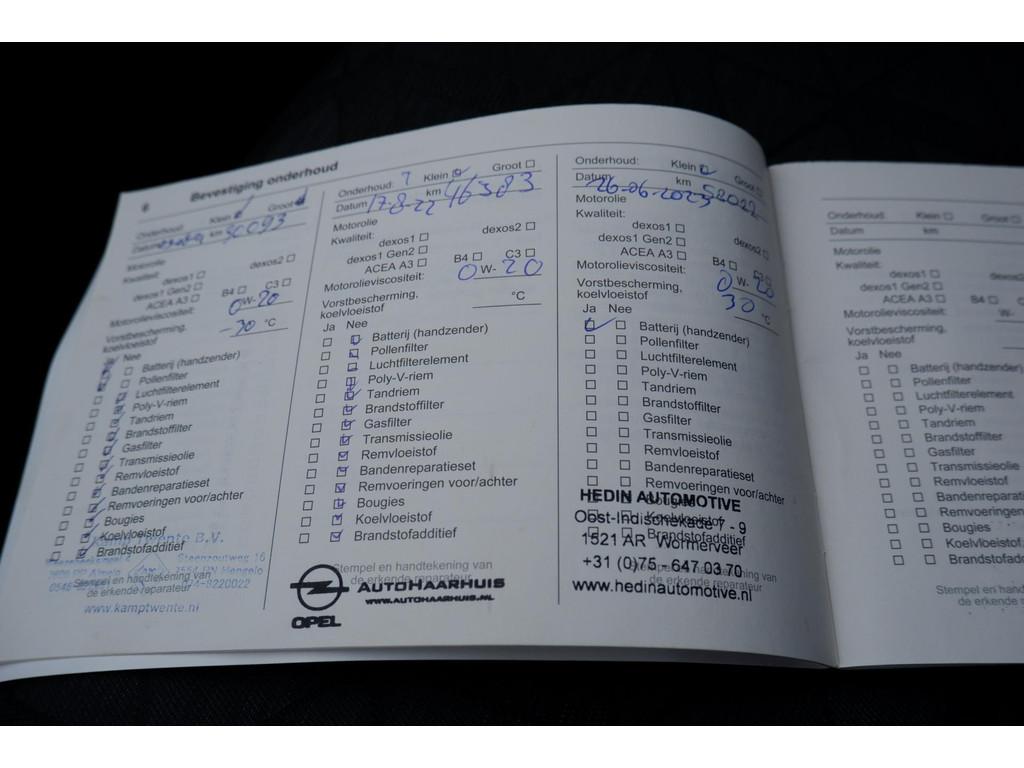 6 Bevestiging onderhoud
Onderhoud: Klein Groot
Datum km 30093
Motorolie
Kwaliteit:
dexos1 dexos2
dexos1 Gen2
ACEA A3 B4 C3
Motorolieviscositeit: 0W-20
Vorstbescherming,
koelvloeistof -30 °C
Nee
Batterij (handzender)
Pollenfilter
Luchtfilterelement
Poly-V-riem
Tandriem
Brandstoffilter
Gasfilter
Transmissieolie
Remvloeistof
Bandenreparatieset
Remvoeringen voor/achter
Bougies
Koelvloeistof
Brandstofadditief
Kamp Twente B.V.
Steenzoutweg 16
Stempel en handtekening van
de erkende reparateur
www.kamptwente.nl
Onderhoud: 7 Klein Groot
Datum 17-8-22 km 46383
Motorolie
Kwaliteit:
dexos1 dexos2
dexos1 Gen2
ACEA A3 B4 C3
Motorolieviscositeit: 0W-20
Vorstbescherming,
koelvloeistof °C
Ja Nee
Batterij (handzender)
Pollenfilter
Luchtfilterelement
Poly-V-riem
Tandriem
Brandstoffilter
Gasfilter
Transmissieolie
Remvloeistof
Bandenreparatieset
Remvoeringen voor/achter
Bougies
Koelvloeistof
Brandstofadditief
Stempel en handtekening van
de erkende reparateur
AUTOHAARHUIS
WWW.AUTOHAARHUIS.NL
OPEL
Onderhoud: Klein Groot
Datum 26-06-2023 km 52022
Motorolie
Kwaliteit:
dexos1 dexos2
dexos1 Gen2
ACEA A3 B4 C3
Motorolieviscositeit: 0W-20
Vorstbescherming,
koelvloeistof 30 °C
Ja Nee
Batterij (handzender)
Pollenfilter
Luchtfilterelement
Poly-V-riem
Tandriem
Brandstoffilter
Gasfilter
Transmissieolie
Remvloeistof
Bandenreparatieset
Remvoeringen voor/achter
Bougies
Koelvloeistof
Brandstofadditief
HEDIN AUTOMOTIVE
Oost-Indischekade 7 - 9
1521 AR Wormerveer
+31 (0)75 - 647 03 70
www.hedinautomotive.nl
Stempel en handtekening van
de erkende reparateur
Onderhoud: Klein Groot
Datum km
Motorolie
Kwaliteit:
dexos1
dexos1 Gen2
ACEA A3 B4
Motorolieviscositeit: W-
Vorstbescherming,
koelvloeistof
Ja Nee
Batterij (handzender)
Pollenfilter
Luchtfilterelement
Poly-V-riem
Tandriem
Brandstoffilter
Gasfilter
Transmissieolie
Remvloeistof
Bandenreparatie
Remvoeringen
Bougies
Koelvloeistof
Brandstofadd
Stempel en handteken
de erkende re